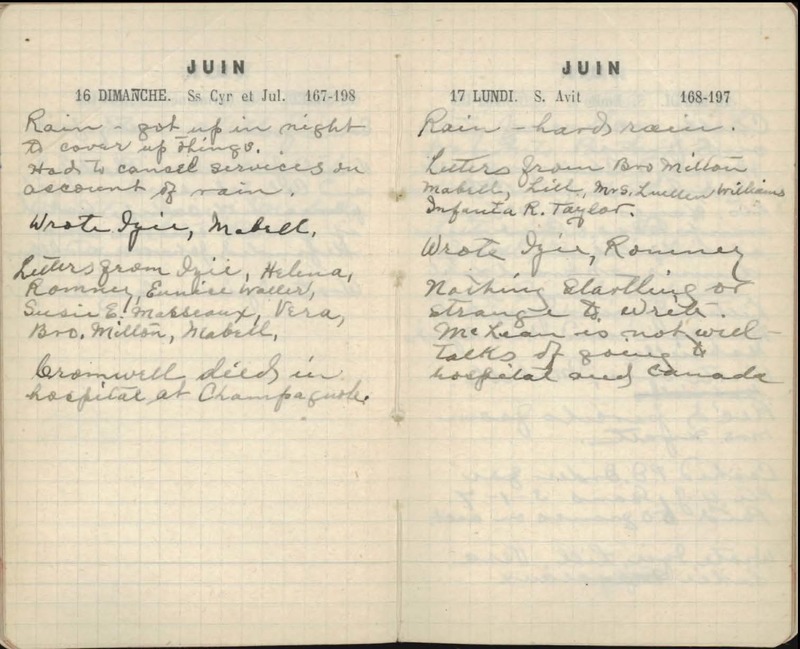 JUIN
16 DIMANCHE. Ss Cyr et Jul. 167-198
Rain - got up in night
to cover up things.
Had to cancel services on
account of rain.
Wrote Izie, Mabell.
Letters from Izie, Helena,
Romney, Eunice Waller,
Susie E. Masseaux, Vera,
Bro. Milton, Mabell,
Cromwell died in
hospital at Champagnole.
JUIN
17 LUNDI. S. Avit 168-197
Rain - hard rain.
Letters from Bro Milton
Mabell, Lill, Mrs. Luellen Williams
Infanta R. Taylor.
Wrote Izie, Romney
Nothing startling or
strange to write.
McLean is not well -
talks of going to
hospital and Canada